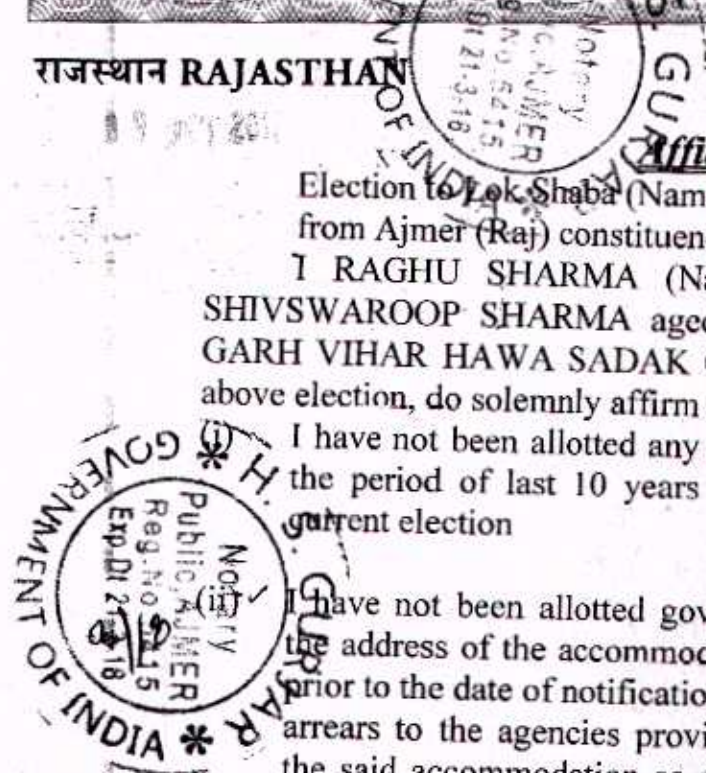 राजस्थान RAJASTHAN
Notary
AJMER
Reg. No 5415
Dt 21-3-18
GURJAR
NT OF INDIA
Affi
Election to Lok Shaba (Nam
from Ajmer (Raj) constituen
I RAGHU SHARMA (Na
SHIVSWAROOP SHARMA aged
GARH VIHAR HAWA SADAK
above election, do solemnly affirm
(i) I have not been allotted any
the period of last 10 years
current election
(ii) I have not been allotted gov
the address of the accommod
prior to the date of notificatio
arrears to the agencies provi
the said accommodation
H. S. GURJAR
GOVERNMENT OF INDIA
Notary
Public, AJMER
Reg. No 5415
Exp. Dt 21-3-18